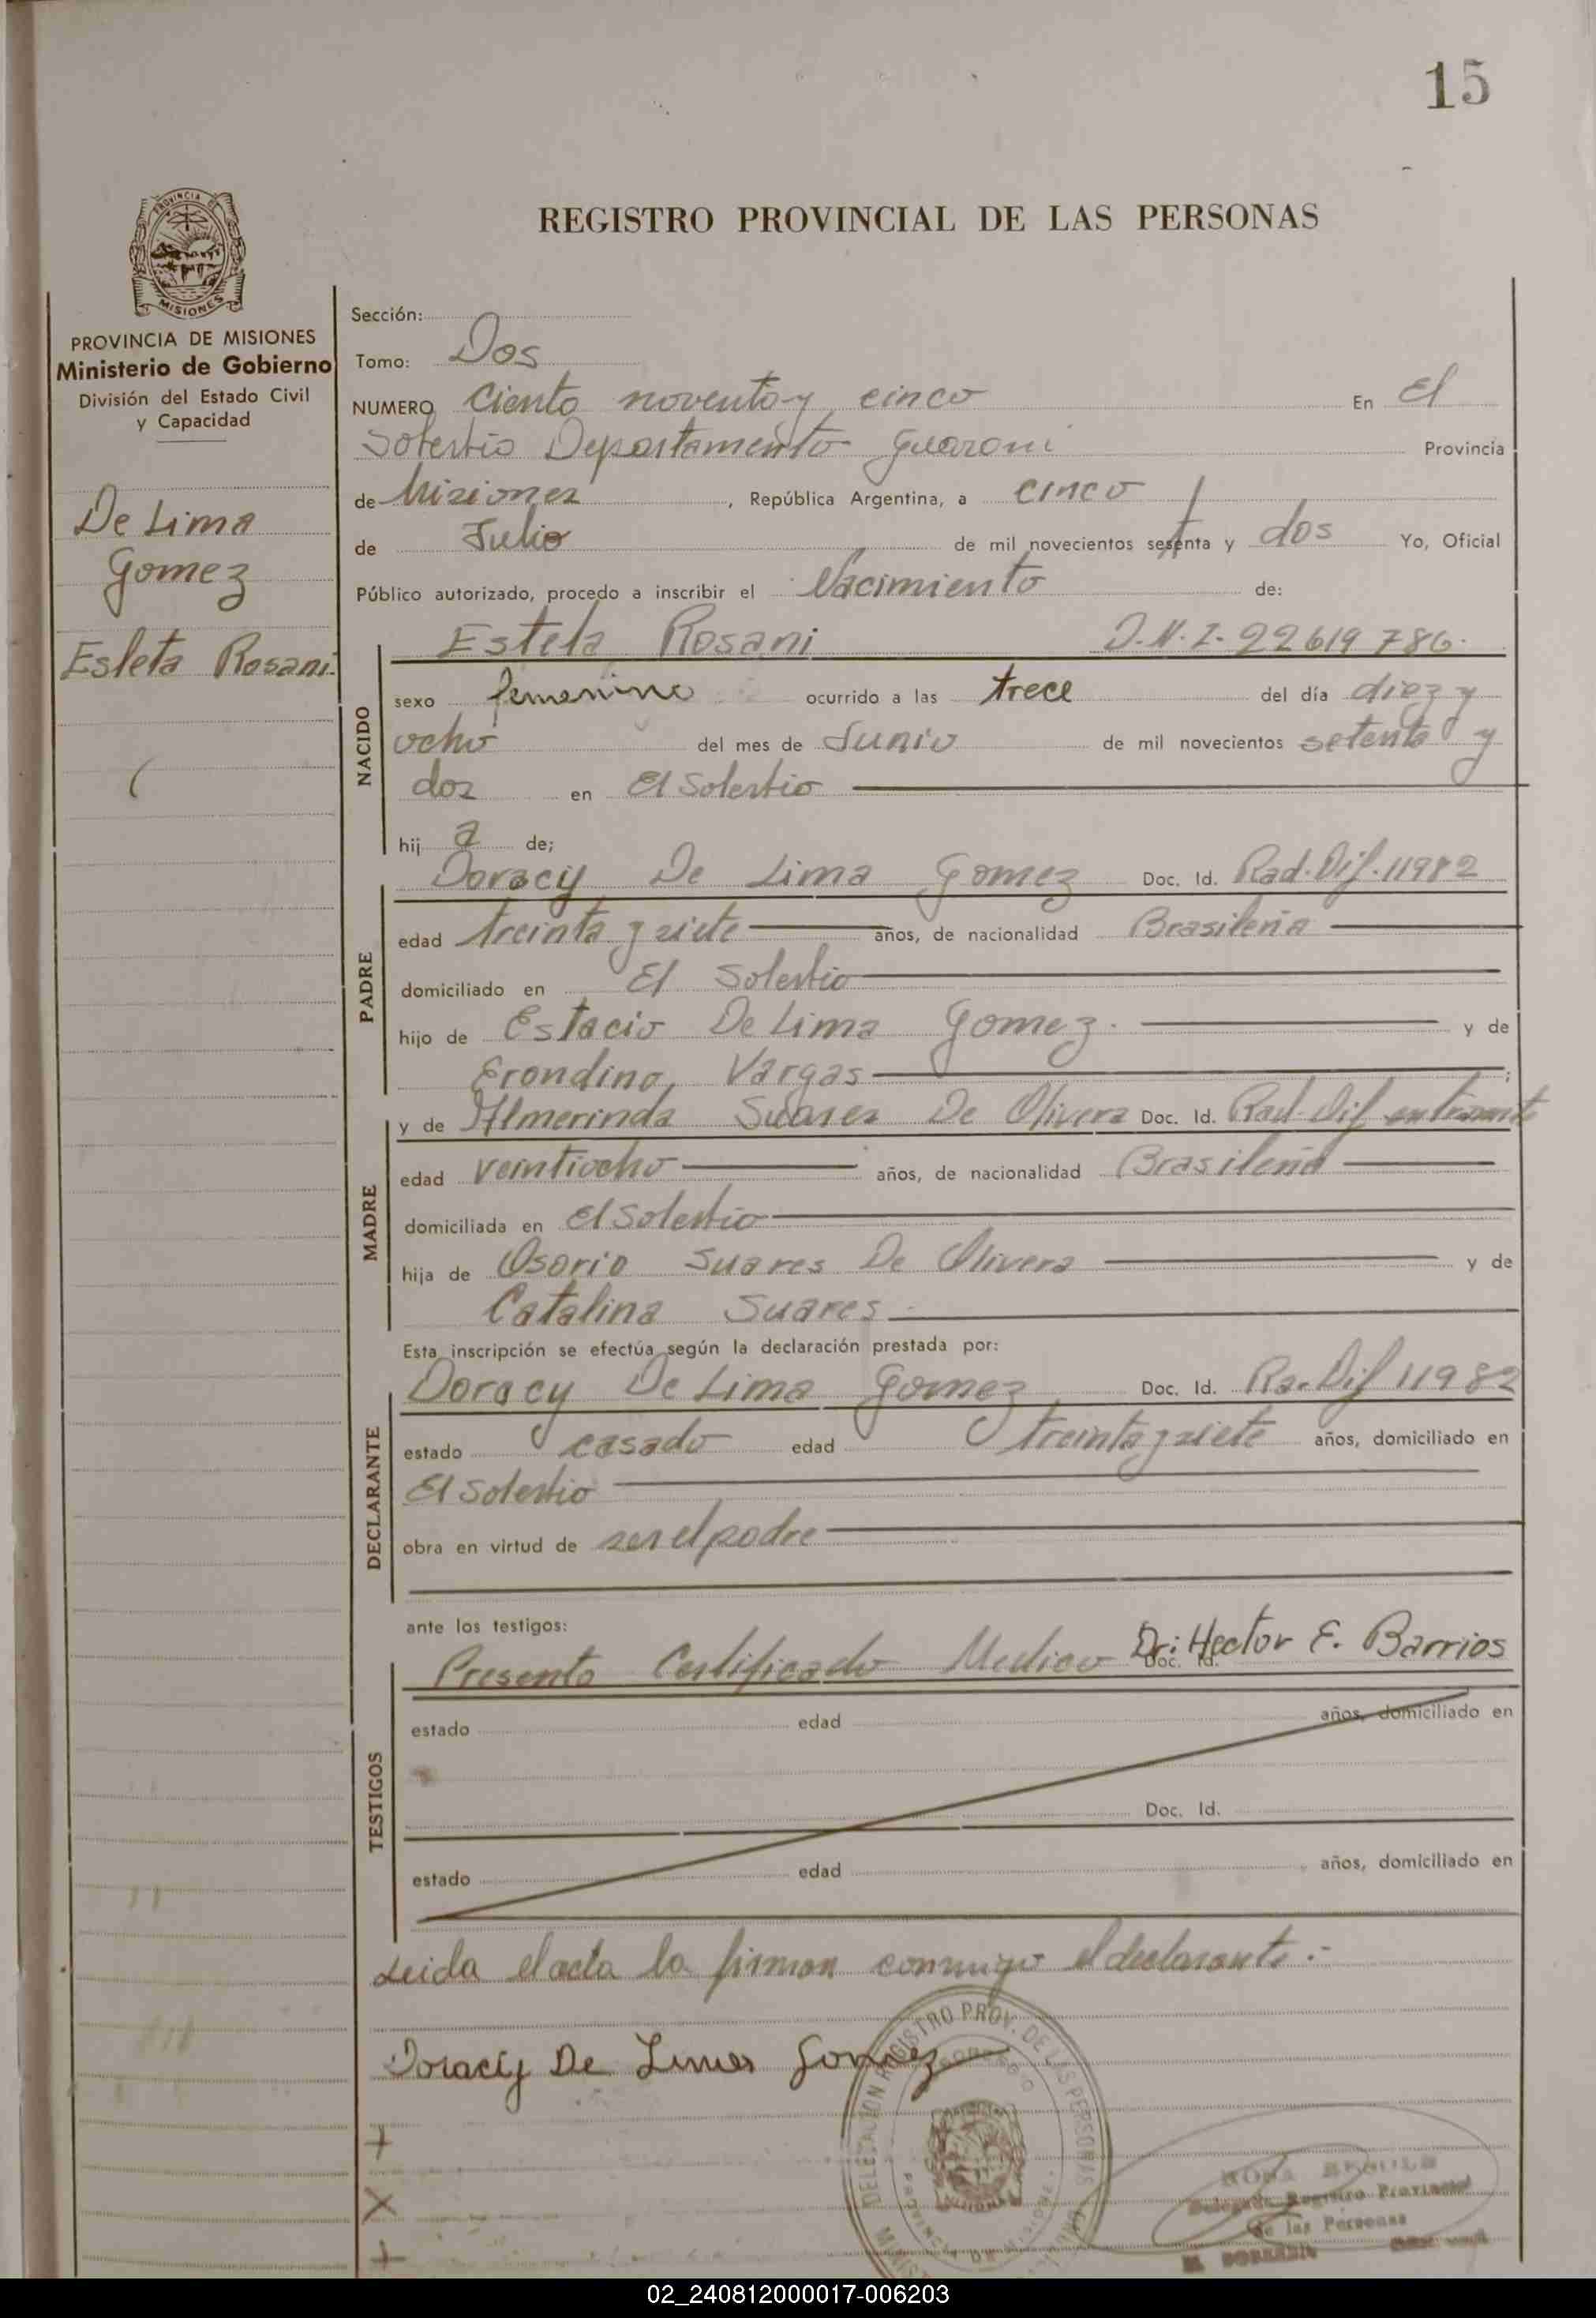 15
REGISTRO PROVINCIAL DE LAS PERSONAS
PROVINCIA DE MISIONES
Ministerio de Gobierno
División del Estado Civil
y Capacidad
De Lima
Gomez
Esleta Rosani
Sección:
Tomo: Dos
NUMERO Ciento noventa y cinco En El
Soberbio Departamento Guarani Provincia
de Misiones, República Argentina, a cinco
de Julio de mil novecientos setenta y dos Yo, Oficial
Público autorizado, procedo a inscribir el Nacimiento de:
NACIDO
Estela Rosani D.N.I. 22619786.
sexo femenino ocurrido a las trece del día diez y
ocho del mes de Junio de mil novecientos setenta y
dos en El Soberbio
hij a de;
PADRE
Doracy De Lima Gomez Doc. Id. Rad. Dif. 11982
edad treinta y siete años, de nacionalidad Brasileña
domiciliado en El Soberbio
hijo de Estacio De Lima Gomez. y de
Erondina, Vargas ;
MADRE
y de Almerinda Suares De Olivera Doc. Id. Rad. Dif en tramite
edad veintiocho años, de nacionalidad Brasileña
domiciliada en El Soberbio
hija de Osorio Suares De Olivera y de
Catalina Suares
Esta inscripción se efectúa según la declaración prestada por:
DECLARANTE
Doracy De Lima Gomez Doc. Id. Ra. Dif 11982
estado casado edad treinta y siete años, domiciliado en
El Soberbio
obra en virtud de ser el padre
ante los testigos:
TESTIGOS
Presento Certificado Medico Dr: Hector E. Barrios
Doc. Id.
estado edad años, domiciliado en
Doc. Id.
estado edad años, domiciliado en
Leida el acta la firman conmigo el declarante.-
Doracy De Lima Gomez
DELEGACION REGISTRO PROV. DE LAS PERSONAS
Delegada Registro Provincial
de las Personas
EL SOBERBIO
02_240812000017-006203